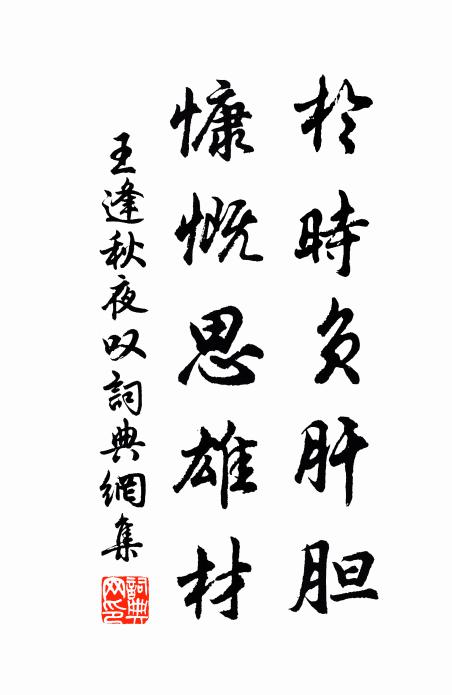 於時负肝胆
慷慨思雄材
王逢秋夜叹詞典網集
詞典網印